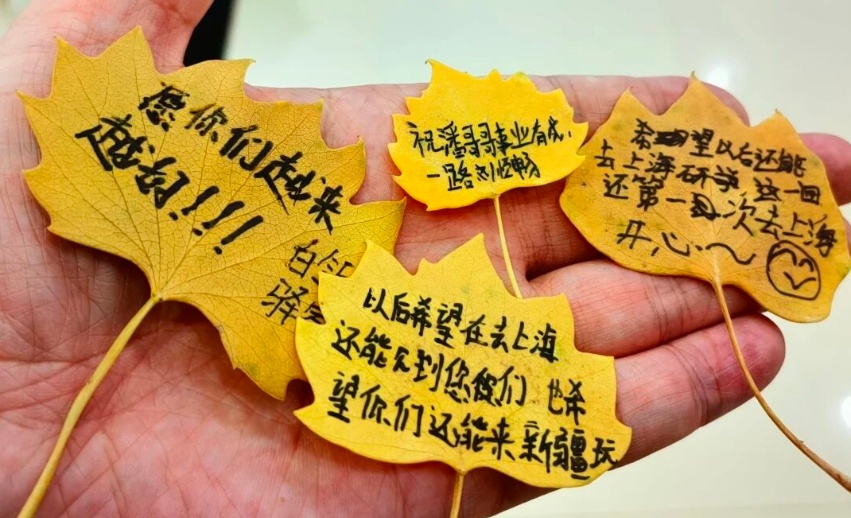 愿你们越来
越好!!!!
祝潘哥哥事业有成,
一路顺畅
希望以后还能
去上海研学 这一回
还第一次去上海
开心~
以后希望在去上海
还能见到您们 也希
望你们还能来新疆玩